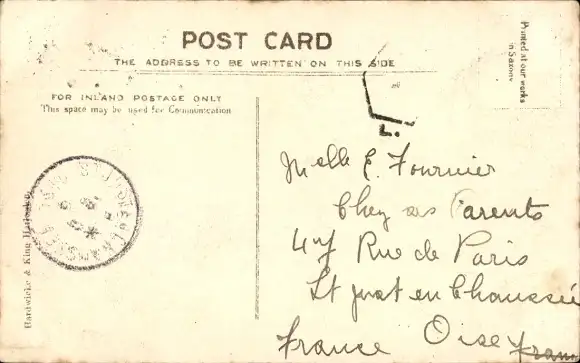 POST CARD
THE ADDRESS TO BE WRITTEN ON THIS SIDE
Printed at our works
in Saxony
FOR INLAND POSTAGE ONLY
This space may be used for Communication
L.
Melle E. Fournier
Chez ses Parents
Rue de Paris
St just en Chaussée
France Oise France
Hardwicke & King